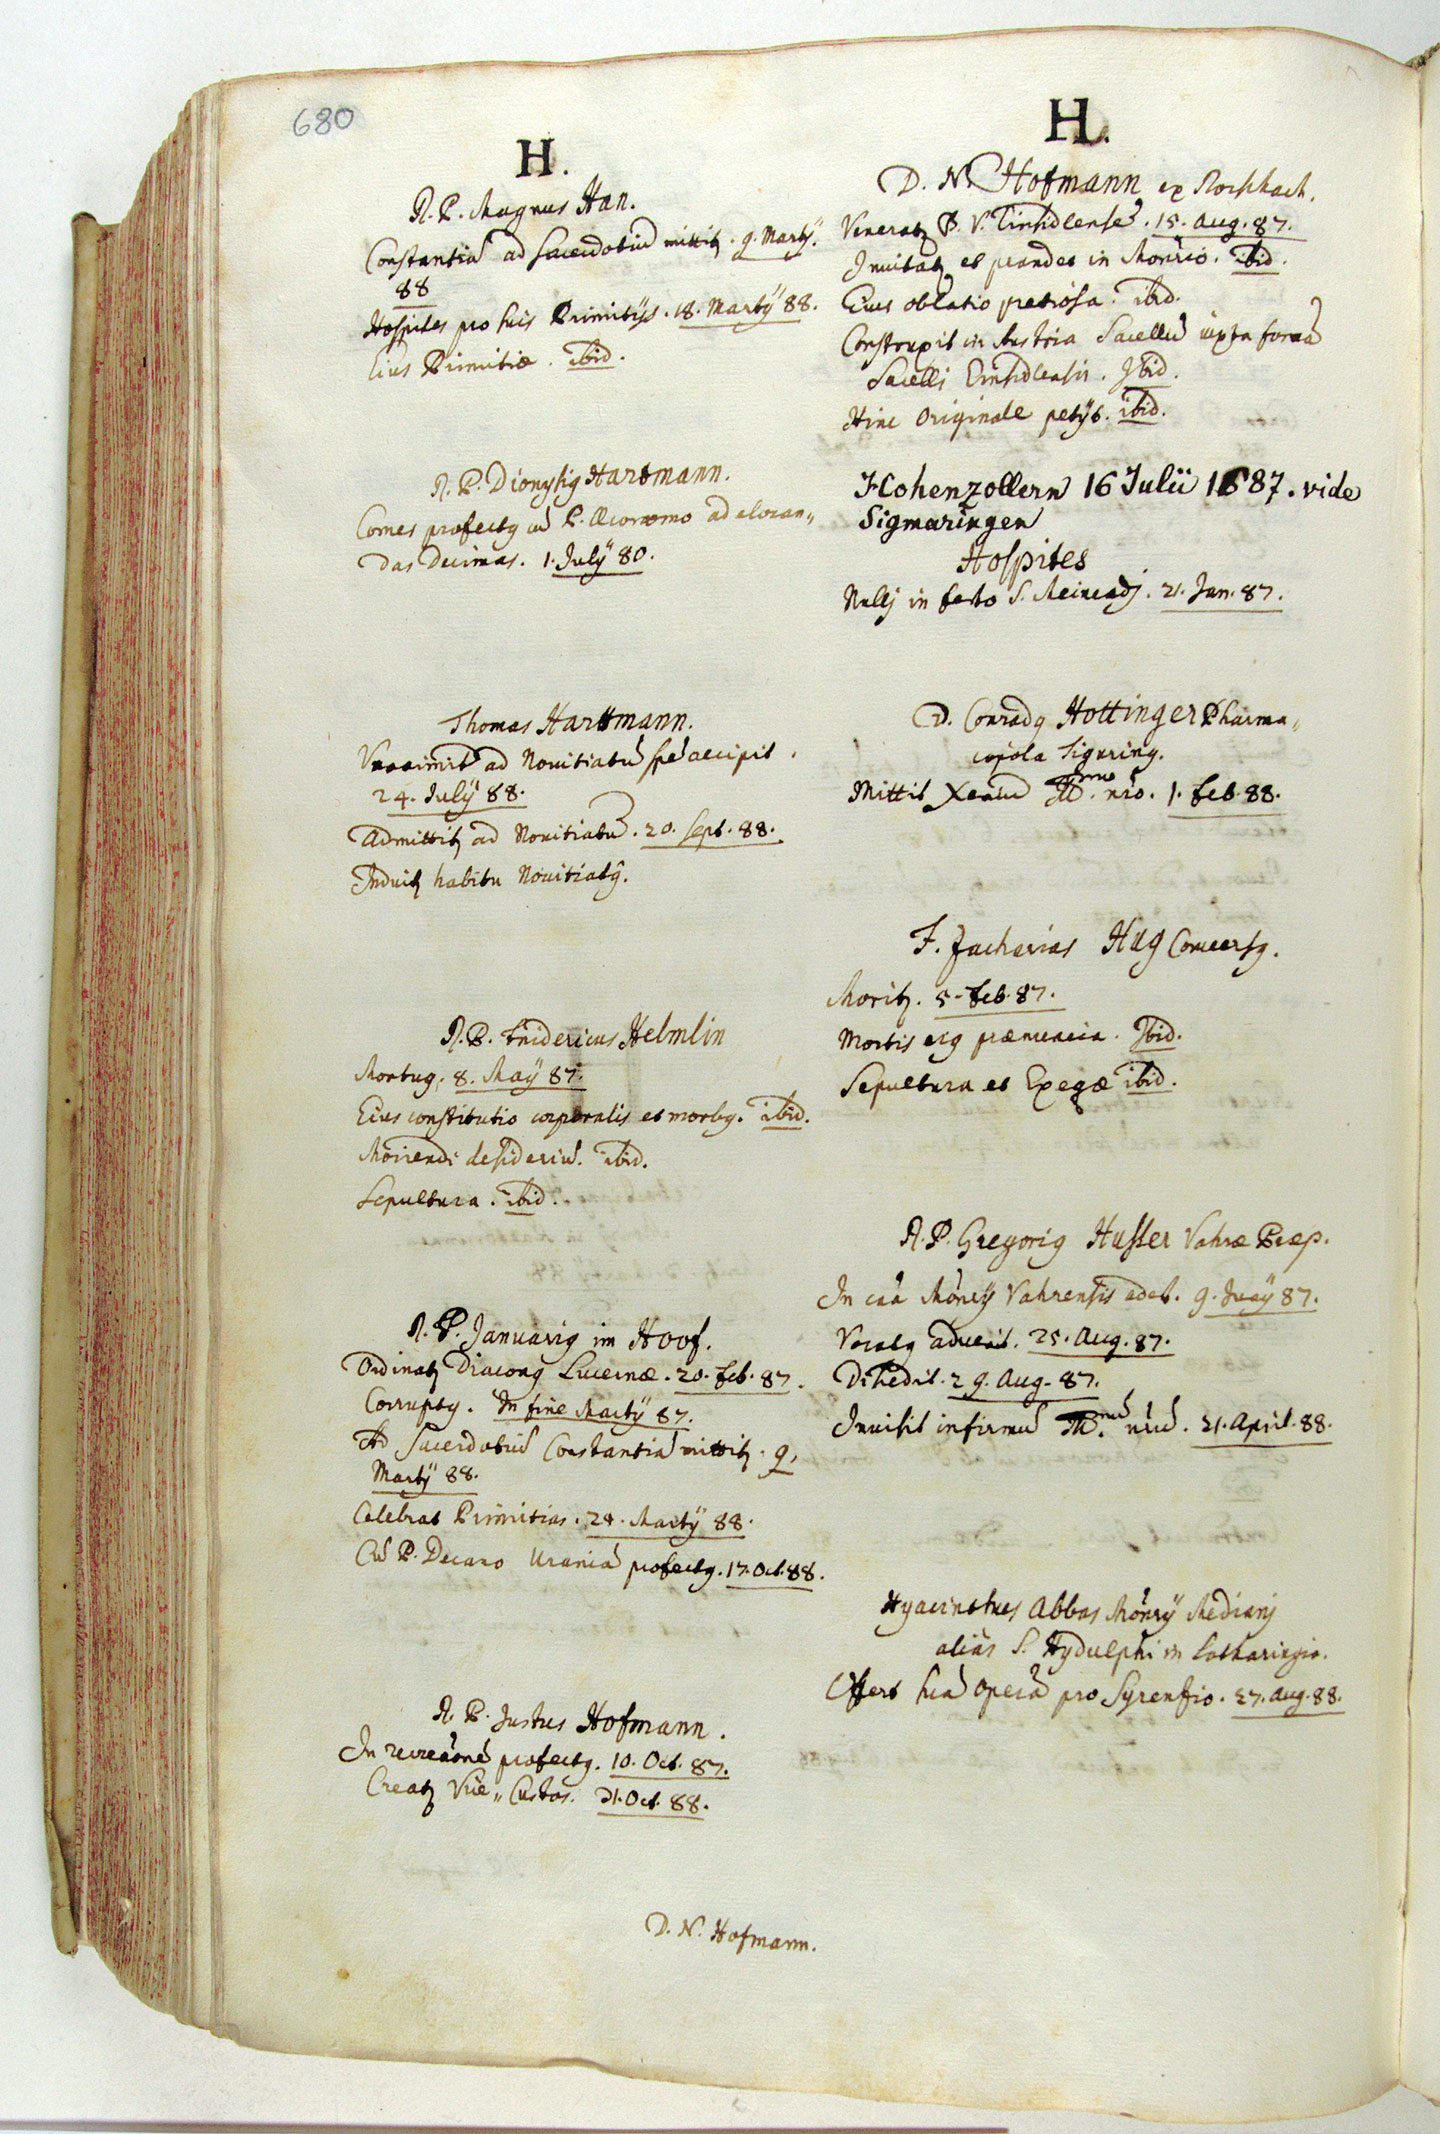 680
H.
R. P. Magnus Han.
Constantiā ad Sacerdotiū mittitꝫ. 9. Martÿ.
88
Hospites pro suis Primitÿs. 18. Martÿ 88.
Eius Primitiæ. ibid.
R. P. Dionysiꝰ Hartmann.
Comes profectꝰ cū P. Œconomo ad elocan„
das Decimas. 1. Julÿ 80.
Thomas Hartmann.
ad Novitiatū spē accipit.
24. Julÿ 88.
Admittitꝫ ad Novitiatū. 20. Sept. 88.
Induitꝫ habitu Novitiatꝰ.
R. P. Fridericus Helmlin
Mortuꝰ. 8. Maÿ 87.
Eius constitutio corporalis et morbꝰ. ibid.
Moriendi desideriū. ibid.
Sepultura. ibid.
R. P. Januariꝰ im Hoof.
Ordinatꝫ Diaconꝰ Lucernæ. 20. feb. 87.
Corruptꝰ. In fine Martÿ 87.
Ad Sacerdotiū Constantiā mittitꝫ. 9.
Martÿ 88.
Celebrat Primitias. 24. Martÿ 88.
Cū P. Decano Uraniā profectꝰ. 17. Oct. 88.
R. P. Justus Hofmann.
In recreāonē profectꝰ. 10. Oct. 87.
Creatꝫ Vice„Custos. 21. Oct. 88.
D. N. Hofmann.
H.
D. N. Hofmann ex Roschach.
Veneratꝫ B. V. Einsidlensē. 15. Aug. 87.
Invitatꝫ et prandet in Monrio. ibid.
Eius oblatio pretiosa. ibid.
Construxit in Austria Sacellū iuxta formā
Sacelli Einsidlensis. Ibid.
Hinc Originale petÿt. ibid.
Hohenzollern 16 Julii 1687. vide
Sigmaringen
Hospites
Nulli in festo S. Meinradi. 21. Jan. 87.
D. Conradꝰ Hottinger Pharma„
copola Tigurinꝰ.
Mittit Xeniū Rmo. nro. 1. feb. 88.
F. Zacharias Hug Conversꝰ.
Moritꝫ. 5. feb. 87.
Mortis eiꝰ prænuncia. Ibid.
Sepultura et Exequæ ibid.
R. P. Gregoriꝰ Husler Vahræ Præp.
In cāā Monrÿ Vahrensis adest. 9. Maÿ 87.
Vocatꝰ advenit. 25. Aug. 87.
Discedit. 29. Aug. 87.
Invisit infirmū Rmū. nrū. 21. April. 88.
Hyacinthus Abbas Monrÿ Mediani
aliàs S. Hydulphi in Lotharingia.
Offert suā operā pro Syrenzio. 27. Aug. 88.